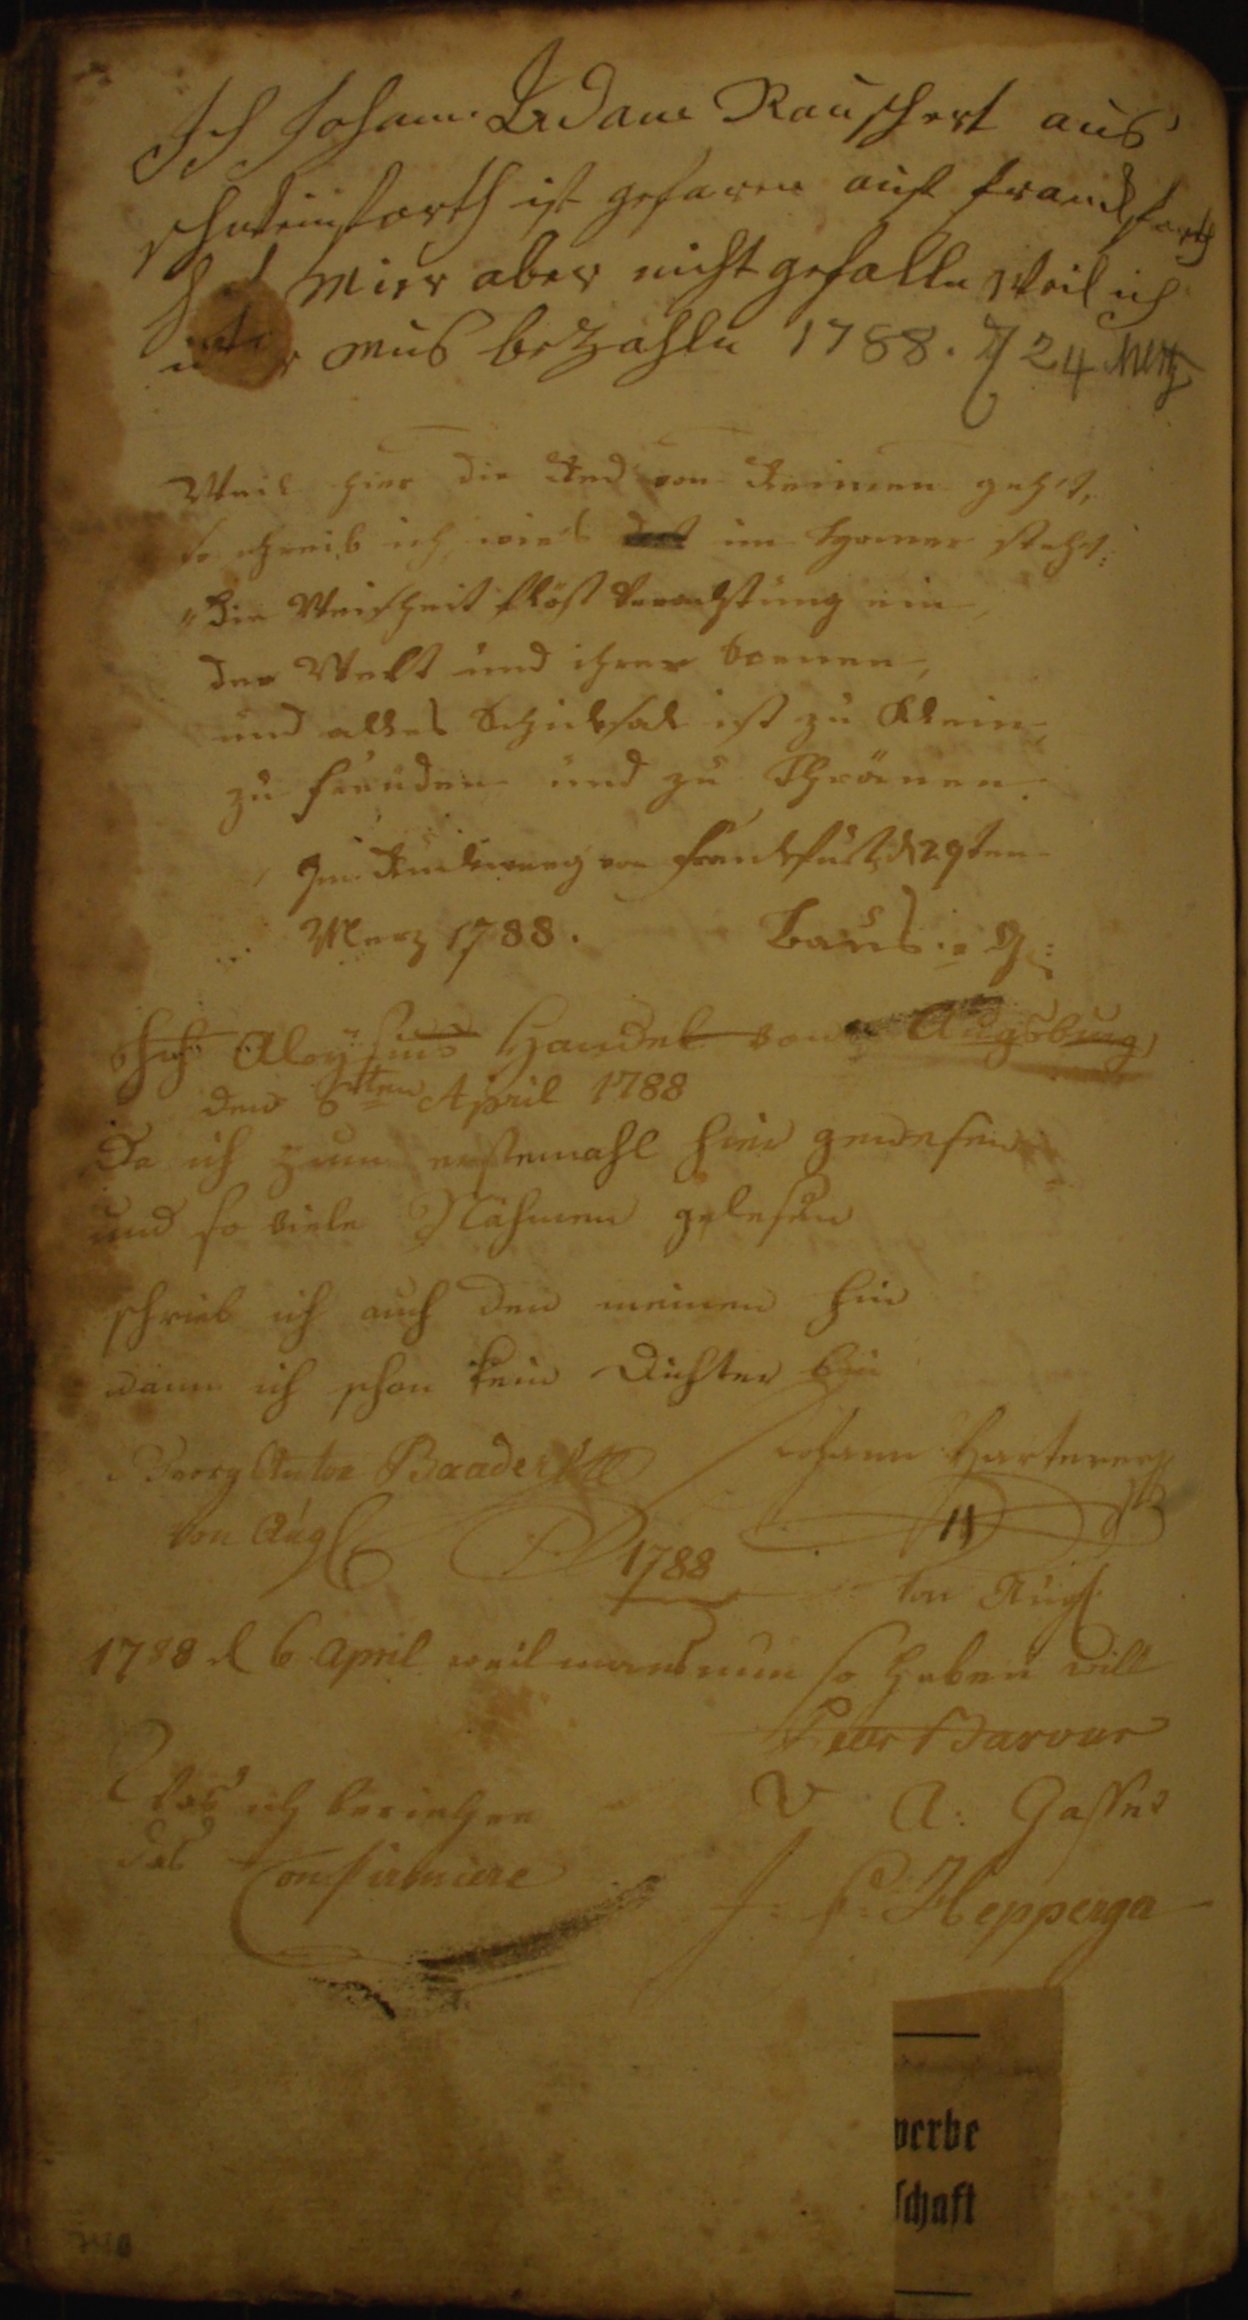 Ich Johann Adam Rauschert aus
schweinforth ist gefaren auf franckforth
mier aber nicht gefalln Weil ich
mus bezahln 1788. d 24 Mertz
Weil hier die Red von Reimen geht,
so schreib ich, wie's im steht:
"Die Weisheit flöst Verachtung ein,
der Welt und ihrer Scenen,
und alles Schicksal ist zu klein,
zu freuden und zu Thränen.
Im Rückweeg von Frankfurt d 29ten
Merz 1788.
Aloysius Handel von Augsburg
den 6ten April 1788
Da ich zum erstemahl hier gewesen
und so viele Nahmen gelesen
schrieb ich auch den meinen hin
wann ich schon kein Dichter bin
Georg Anton Baader
von Augs
Johann
1788
von Augs
1788 d 6 April weil mans nun so haben will
Peter
das ich
das
Confirmiere
V A: Gasser
J: P: Hepperger
werbe
schaft